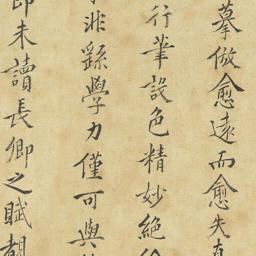 摹倣愈遠而愈失真
行筆設色精妙絕倫
非繇學力僅可與
即未讀長卿之賦都